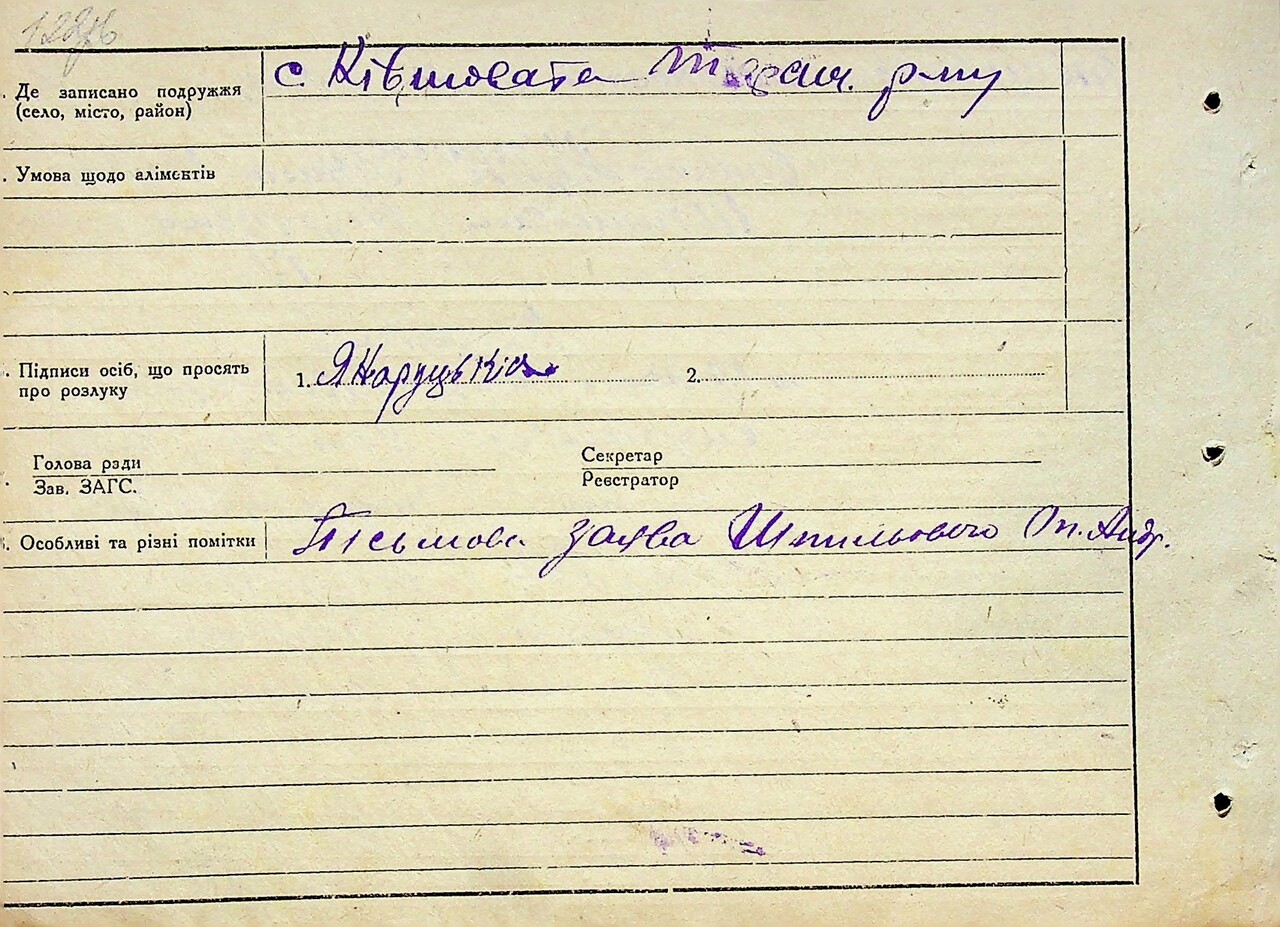 . Де записано подружжя
(село, місто, район)
с. Ківшовата р-ну
. Умова щодо аліментів
. Підписи осіб, що просять
про розлуку
1. 2.
Голова ради
Зав. ЗАГС.
Секретар
Реєстратор
. Особливі та різні помітки
Пісьмова заява Шпильового Оп. Андр.